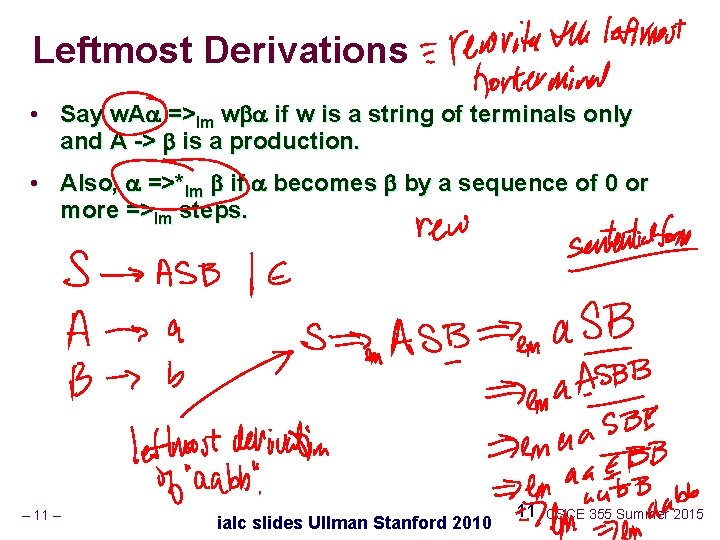 Leftmost Derivations ≡ rewrite the leftmost
nonterminal
• Say w.Aα =>lm wβα if w is a string of terminals only
and A -> β is a production.
• Also, α =>*lm β if α becomes β by a sequence of 0 or
more =>lm steps.
rew
sentential form
S → ASB | ε
A → a
B → b
S ⇒lm ASB ⇒lm aSB
⇒lm aASBB
⇒lm aaSBB
⇒lm aaεBB
aabB
⇒lm aabb
leftmost derivation
of "aabb".
– 11 –
ialc slides Ullman Stanford 2010
11
CSCE 355 Summer 2015